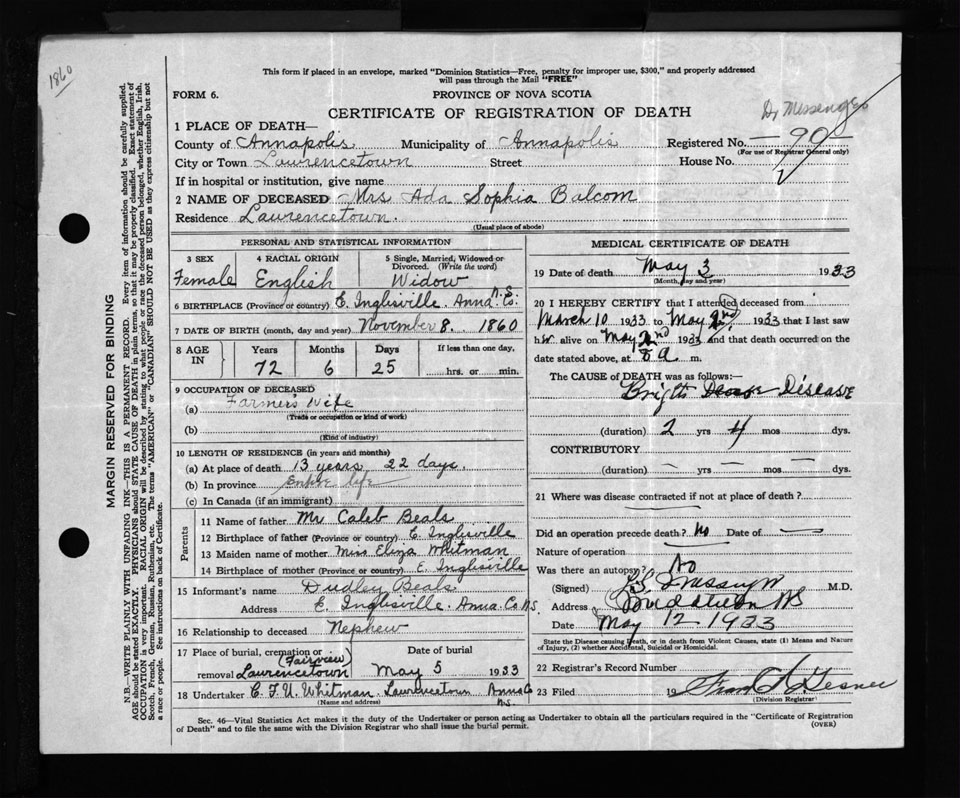 1860
This form if placed in an envelope, marked "Dominion Statistics—Free, penalty for improper use, $300," and properly addressed
will pass through the Mail "FREE"
FORM 6.
PROVINCE OF NOVA SCOTIA
CERTIFICATE OF REGISTRATION OF DEATH
Dr Messenger
1 PLACE OF DEATH—
County of Annapolis Municipality of Annapolis Registered No. 90
(For use of Registrar General only)
City or Town Lawrencetown Street House No.
If in hospital or institution, give name
2 NAME OF DECEASED Mrs Ada Sophia Balcom
Residence Lawrencetown.
(Usual place of abode)
PERSONAL AND STATISTICAL INFORMATION
3 SEX
Female
4 RACIAL ORIGIN
English
5 Single, Married, Widowed or
Divorced. (Write the word)
Widow
6 BIRTHPLACE (Province or country) E. Inglisville. Anna. Co. N.S.
7 DATE OF BIRTH (month, day and year) November 8. 1860
8 AGE
IN
Years
72
Months
6
Days
25
If less than one day,
hrs. or min.
9 OCCUPATION OF DECEASED
(a) Farmer's Wife
(Trade or occupation or kind of work)
(b)
(Kind of industry)
10 LENGTH OF RESIDENCE (in years and months)
(a) At place of death 13 years, 22 days.
(b) In province Entire life
(c) In Canada (if an immigrant)
Parents
11 Name of father Mr Caleb Beals
12 Birthplace of father (Province or country) E. Inglisville
13 Maiden name of mother Miss Eliza Whitman
14 Birthplace of mother (Province or country) E. Inglisville
15 Informant's name Dudley Beals
Address E. Inglisville. Anna. Co N.S.
16 Relationship to deceased Nephew
17 Place of burial, cremation or
removal Lawrencetown (Fairview)
Date of burial
May 5 1933
18 Undertaker C. F. U. Whitman. Lawrencetown Anna Co
N.S.
(Name and address)
MEDICAL CERTIFICATE OF DEATH
19 Date of death May 3 1933
(Month, day and year)
20 I HEREBY CERTIFY that I attended deceased from
March 10 1933 to May 2nd, 1933 that I last saw
her alive on May 2nd 1933 and that death occurred on the
date stated above, at 8 a. m.
The CAUSE OF DEATH was as follows:—
Brights Disease
(duration) 2 yrs 4 mos dys.
CONTRIBUTORY
(duration) — yrs — mos — dys.
21 Where was disease contracted if not at place of death?
Did an operation precede death? No Date of —
Nature of operation
Was there an autopsy? No
(Signed) M.D.
Address Middleton NS
Date May 12 1933
State the Disease causing Death, or in death from Violent Causes, state (1) Means and Nature
of Injury, (2) whether Accidental, Suicidal or Homicidal.
22 Registrar's Record Number
23 Filed 19
(Division Registrar)
Sec. 46—Vital Statistics Act makes it the duty of the Undertaker or person acting as Undertaker to obtain all the particulars required in the "Certificate of Registration
of Death" and to file the same with the Division Registrar who shall issue the burial permit. (OVER)
MARGIN RESERVED FOR BINDING
N.B.—WRITE PLAINLY WITH UNFADING INK—THIS IS A PERMANENT RECORD. Every item of information should be carefully supplied.
AGE should be stated EXACTLY. PHYSICIANS should STATE CAUSE OF DEATH in plain terms, so that it may be properly classified. Exact statement of
OCCUPATION is very important. RACIAL ORIGIN will be described by stating to what people or race the deceased person belonged, whether English, Irish,
Scotch, French, German, Russian, Ruthenian, etc. The terms "AMERICAN" or "CANADIAN" SHOULD NOT BE USED as they express citizenship but not
a race or people. See instructions on back of Certificate.